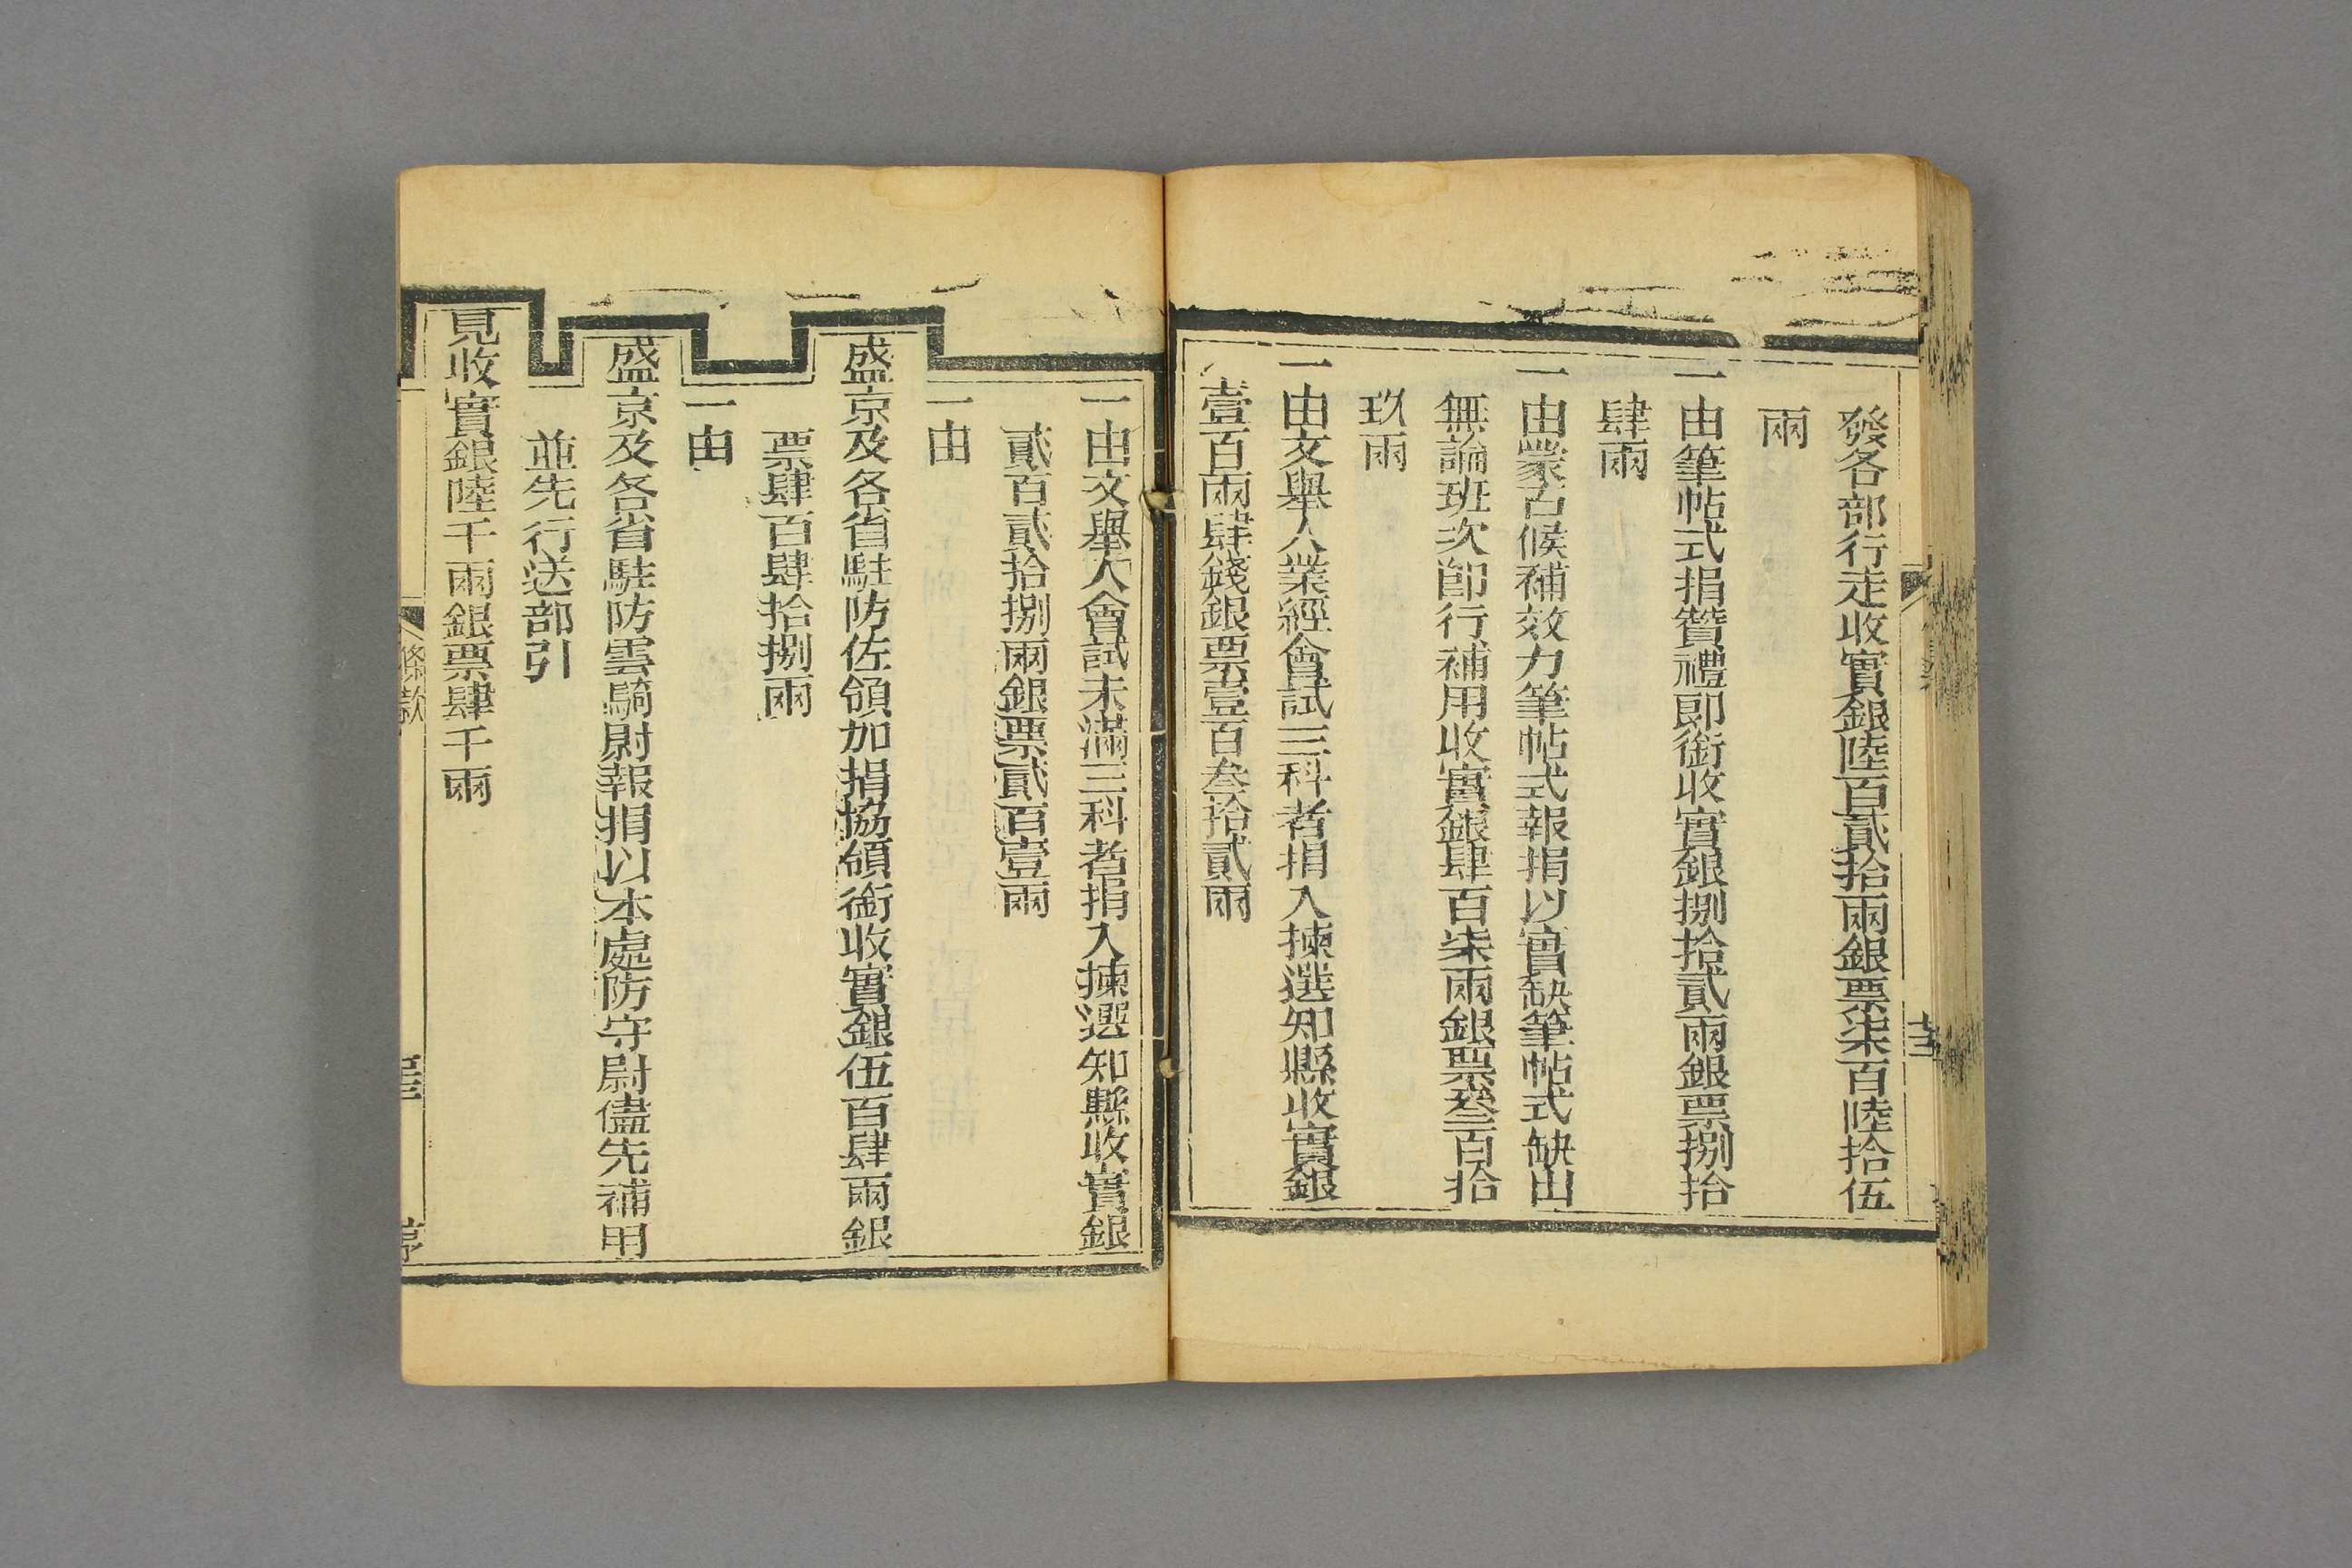 發各部行走收實銀陸百貳拾兩銀票柒百陸拾伍
兩
一由筆帖式捐贊禮郎銜收實銀捌拾貳兩銀票捌拾
肆兩
一由蒙古候補效力筆帖式報捐以實缺筆帖式缺出
無論班次卽行補用收實銀肆百柒兩銀票叁百拾
玖兩
一由文舉人業經會試三科者捐入揀選知縣收實銀
壹百兩肆錢銀票壹百叁拾貳兩
一由文舉人會試未滿三科者捐入揀選知縣收實銀
貳百貳拾捌兩銀票貳百壹兩
一由
盛京及各省駐防佐領加捐協領銜收實銀伍百肆兩銀
票肆百肆拾捌兩
一由
盛京及各省駐防雲騎尉報捐以本處防守尉儘先補用
並先行送部引
見收實銀陸千兩銀票肆千兩
條款